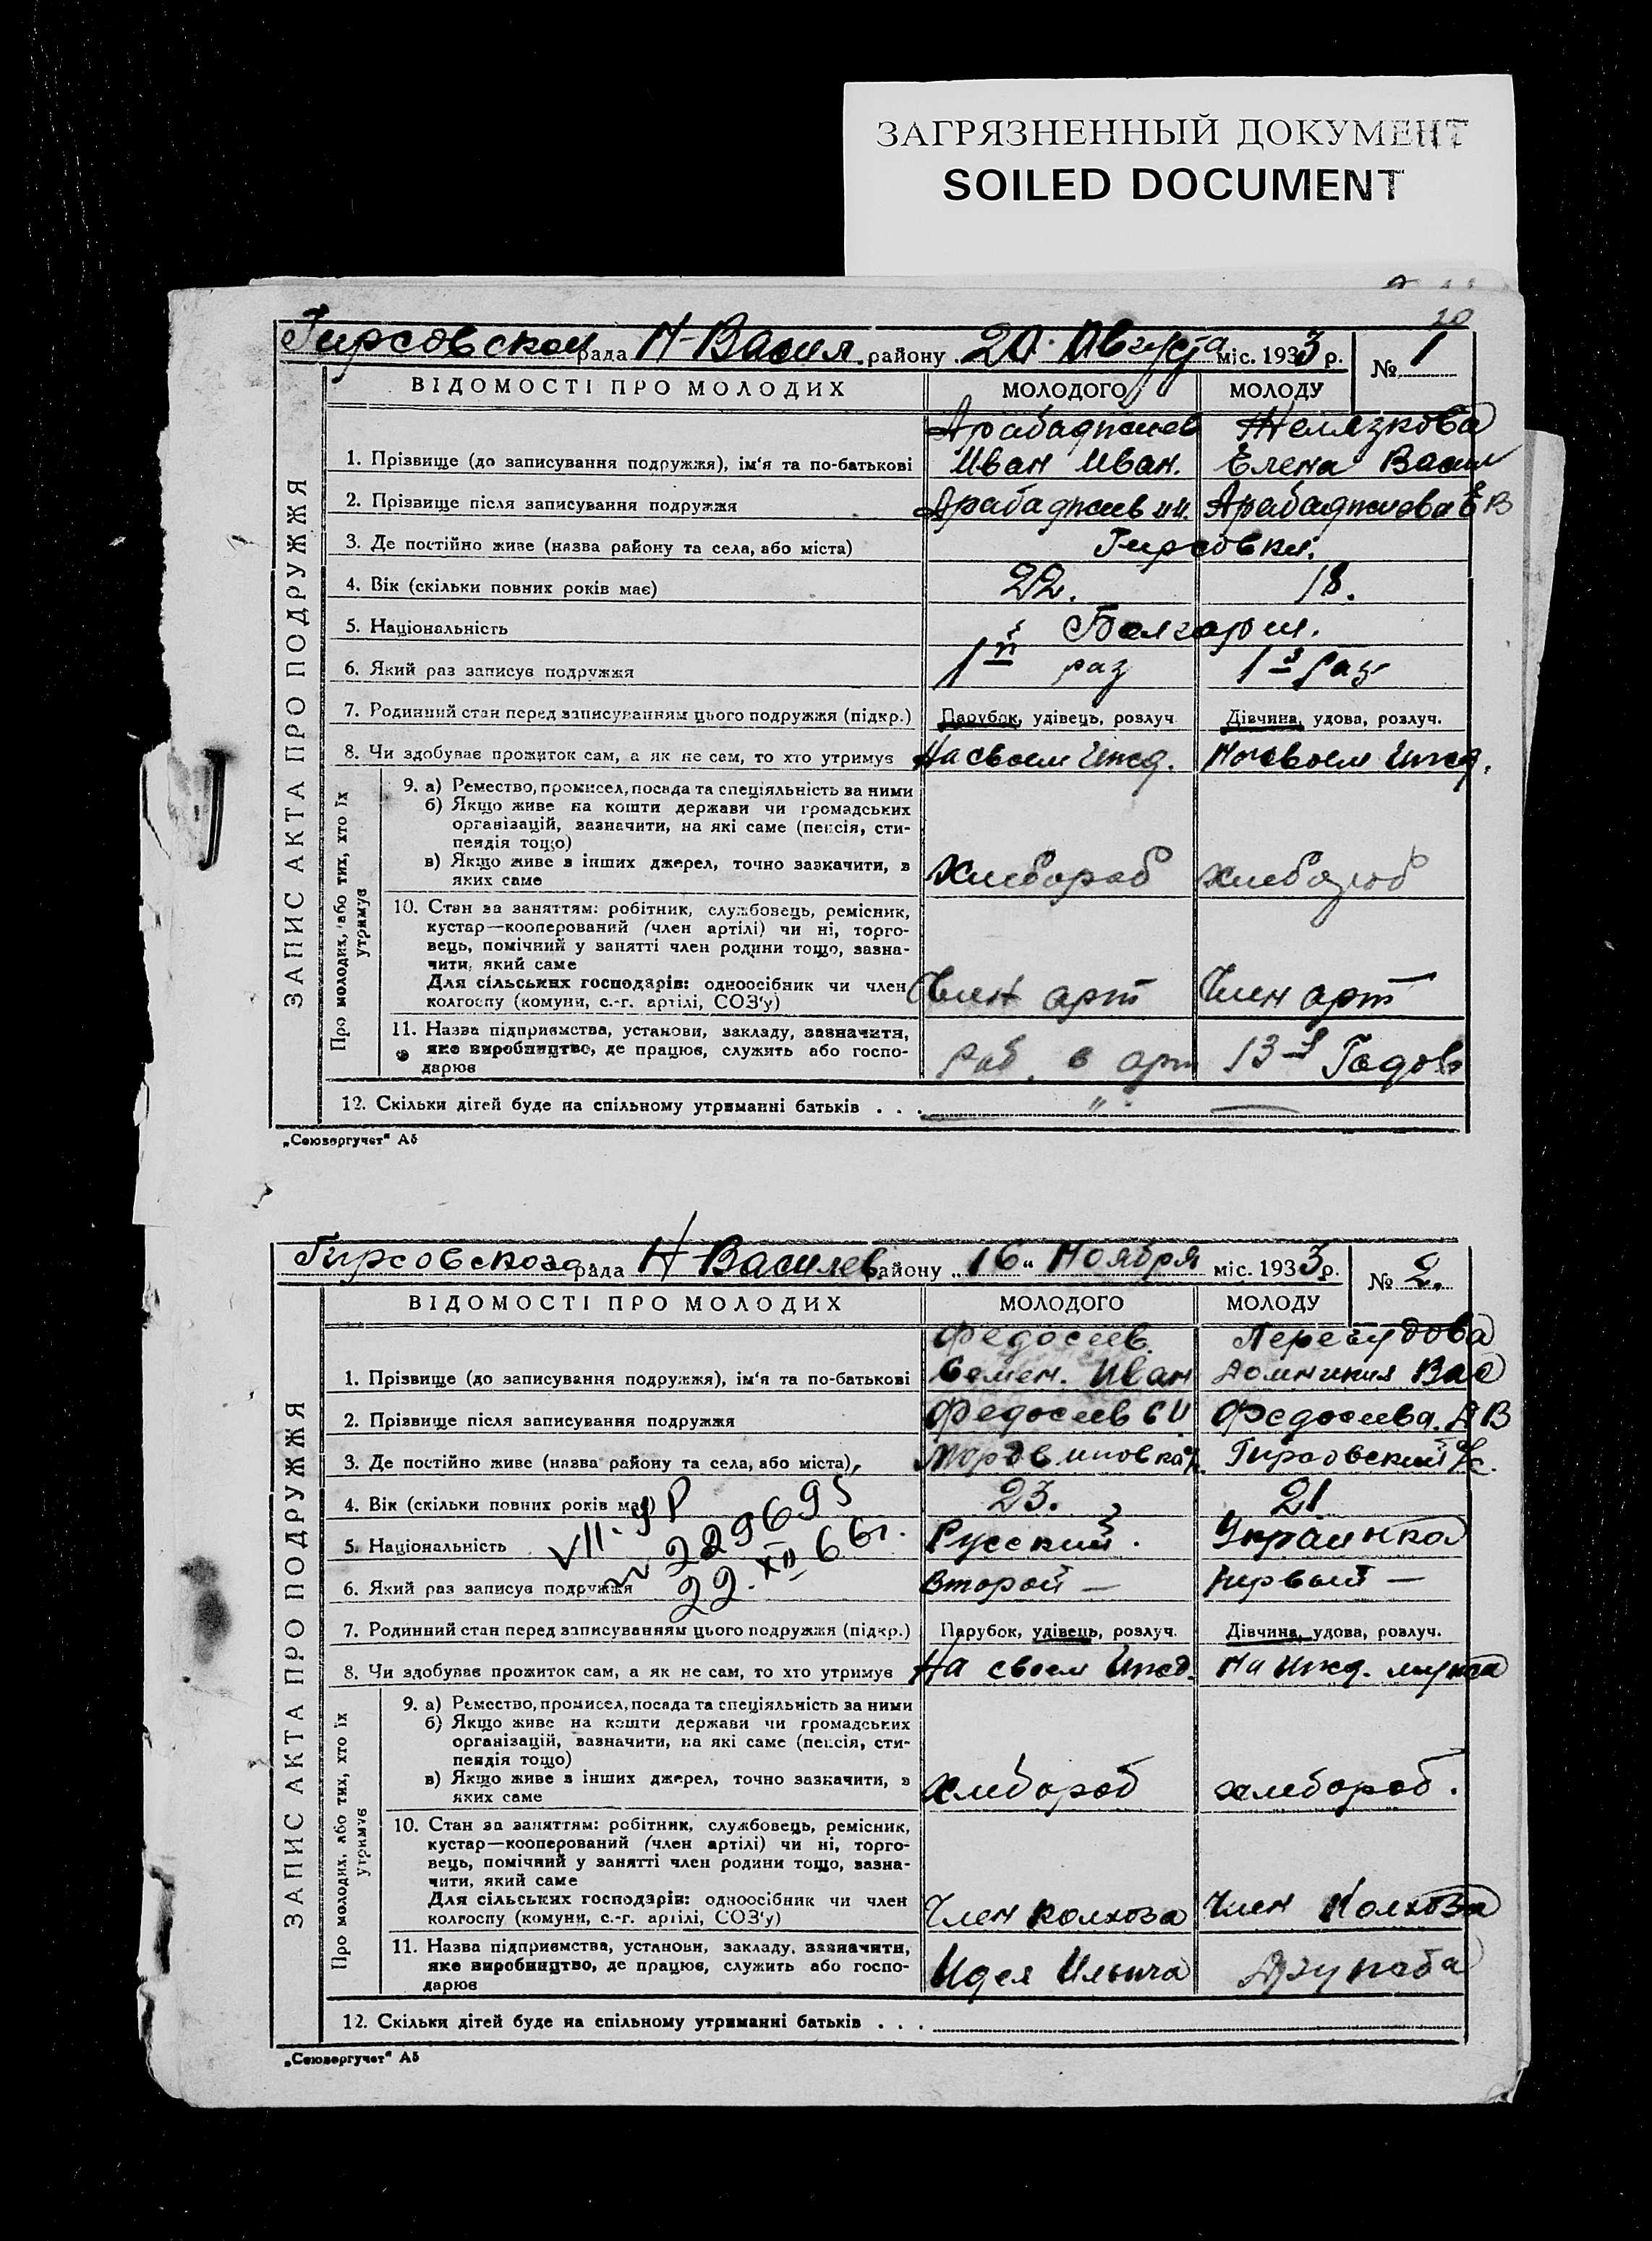 ЗАГРЯЗНЕННЫЙ ДОКУМЕНТ
SOILED DOCUMENT
20
Гирсовской рада Н-Васил. району 20. Августа міс. 1933 р. № 1
ВІДОМОСТІ ПРО МОЛОДИХ МОЛОДОГО МОЛОДУ
ЗАПИС АКТА ПРО ПОДРУЖЖЯ
Арабаджиев Желязкова
1. Прізвище (до записування подружжя), ім'я та по-батькові Иван Иван. Елена Васил
2. Прізвище після записування подружжя Арабаджиев ИИ. Арабаджиева ЕВ
3. Де постійно живе (назва району та села, або міста) Гирсовки.
4. Вік (скільки повних років має) 22. 18.
5. Національність Болгары.
6. Який раз записує подружжя 1й раз 1й раз
7. Родинний стан перед записуванням цього подружжя (підкр.) Парубок, удівець, розлуч. Дівчина, удова, розлуч.
8. Чи здобуває прожиток сам, а як не сам, то хто утримує На своем Ижд. На своем Ижд.
Про молодих, або тих, хто їх утримує
9. а) Ремество, промисел, посада та спеціяльність за ними
б) Якщо живе на кошти держави чи громадських
організацій, зазначити, на які саме (пенсія, сти-
пендія тощо)
в) Якщо живе з інших джерел, точно зазначити, з
яких саме Хлебороб хлебороб
10. Стан за заняттям: робітник, службовець, ремісник,
кустар—кооперований (член артілі) чи ні, торго-
вець, помічний у занятті член родини тощо, зазна-
чити, який саме
Для сільських господарів: одноосібник чи член
колгоспу (комуни, с.-г. артілі, СОЗ'у) Член арт Член арт
11. Назва підприємства, установи, закладу, зазначити,
яке виробництво, де працює, служить або госпо-
дарює Раб. в арт 13-й Годов
12. Скільки дітей буде на спільному утриманні батьків . . . "
„Союзоргучет" А5
Гирсовского рада Н-Василев району „16" Ноября міс. 1933 р. № 2.
ВІДОМОСТІ ПРО МОЛОДИХ МОЛОДОГО МОЛОДУ
ЗАПИС АКТА ПРО ПОДРУЖЖЯ
Федосеев. Перегудова
1. Прізвище (до записування подружжя), ім'я та по-батькові Семен. Иван Домникия Вас
2. Прізвище після записування подружжя Федосеев СИ Федосеева. ДВ
3. Де постійно живе (назва району та села, або міста) Мордвиновка Гирсовский с/с.
4. Вік (скільки повних років має) 23. 21.
5. Національність Русский. Украинка
VII-УР
№ 229695
22.XII 66г.
6. Який раз записує подружжя Второй — Первый —
7. Родинний стан перед записуванням цього подружжя (підкр.) Парубок, удівець, розлуч. Дівчина, удова, розлуч.
8. Чи здобуває прожиток сам, а як не сам, то хто утримує На своем Ижд. На Ижд. мужа
Про молодих, або тих, хто їх утримує
9. а) Ремество, промисел, посада та спеціяльність за ними
б) Якщо живе на кошти держави чи громадських
організацій, зазначити, на які саме (пенсія, сти-
пендія тощо)
в) Якщо живе з інших джерел, точно зазначити, з
яких саме хлебороб хлебороб.
10. Стан за заняттям: робітник, службовець, ремісник,
кустар—кооперований (член артілі) чи ні, торго-
вець, помічний у занятті член родини тощо, зазна-
чити, який саме
Для сільських господарів: одноосібник чи член
колгоспу (комуни, с.-г. артілі, СОЗ'у) Член колхоза Член Колхоза
11. Назва підприємства, установи, закладу, зазначити,
яке виробництво, де працює, служить або госпо-
дарює Идея Ильича Дружба
12. Скільки дітей буде на спільному утриманні батьків . . .
„Союзоргучет" А5